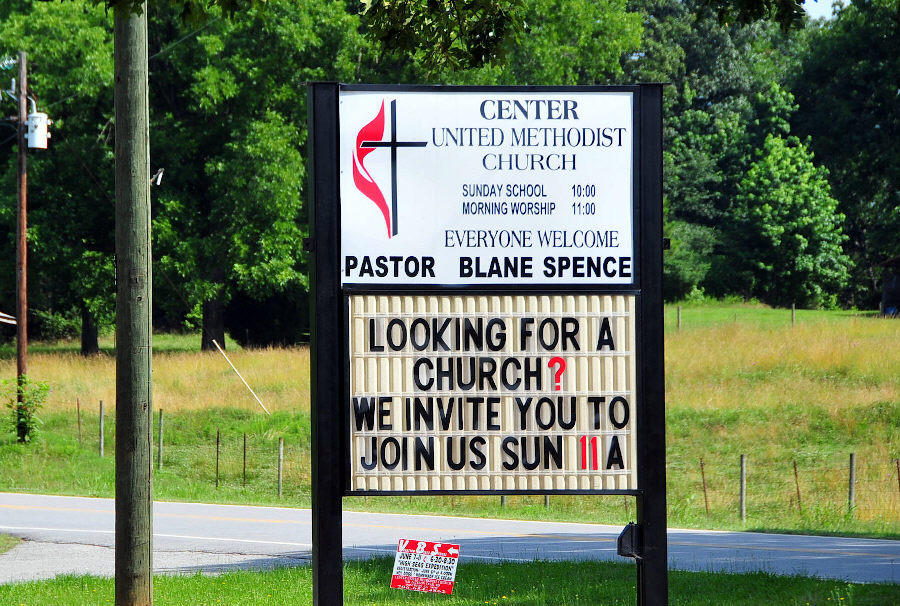 CENTER
UNITED METHODIST
CHURCH
SUNDAY SCHOOL 10:00
MORNING WORSHIP 11:00
EVERYONE WELCOME
PASTOR BLANE SPENCE
LOOKING FOR A
CHURCH?
WE INVITE YOU TO
JOIN US SUN 11 A
V.B.S.
"HIGH SEAS EXPEDITION"